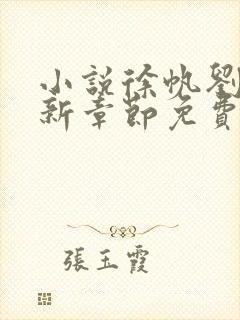 小說徐帆劉
新章節免費
張玉霞